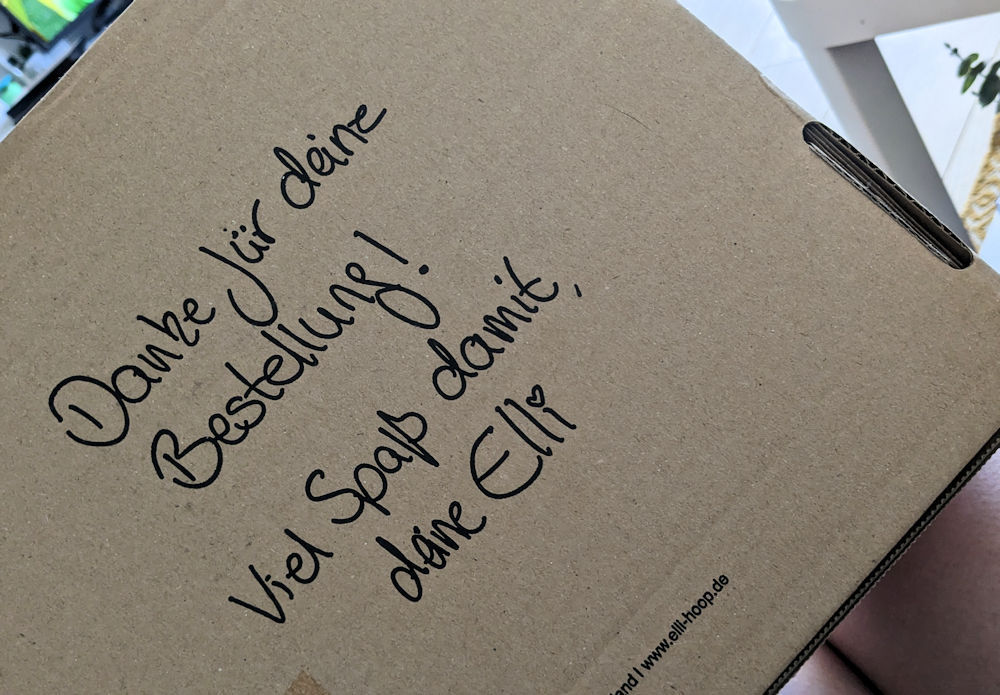 Danke für deine
Bestellung!
Viel Spaß damit,
deine Elli
| www.elli-hoop.de